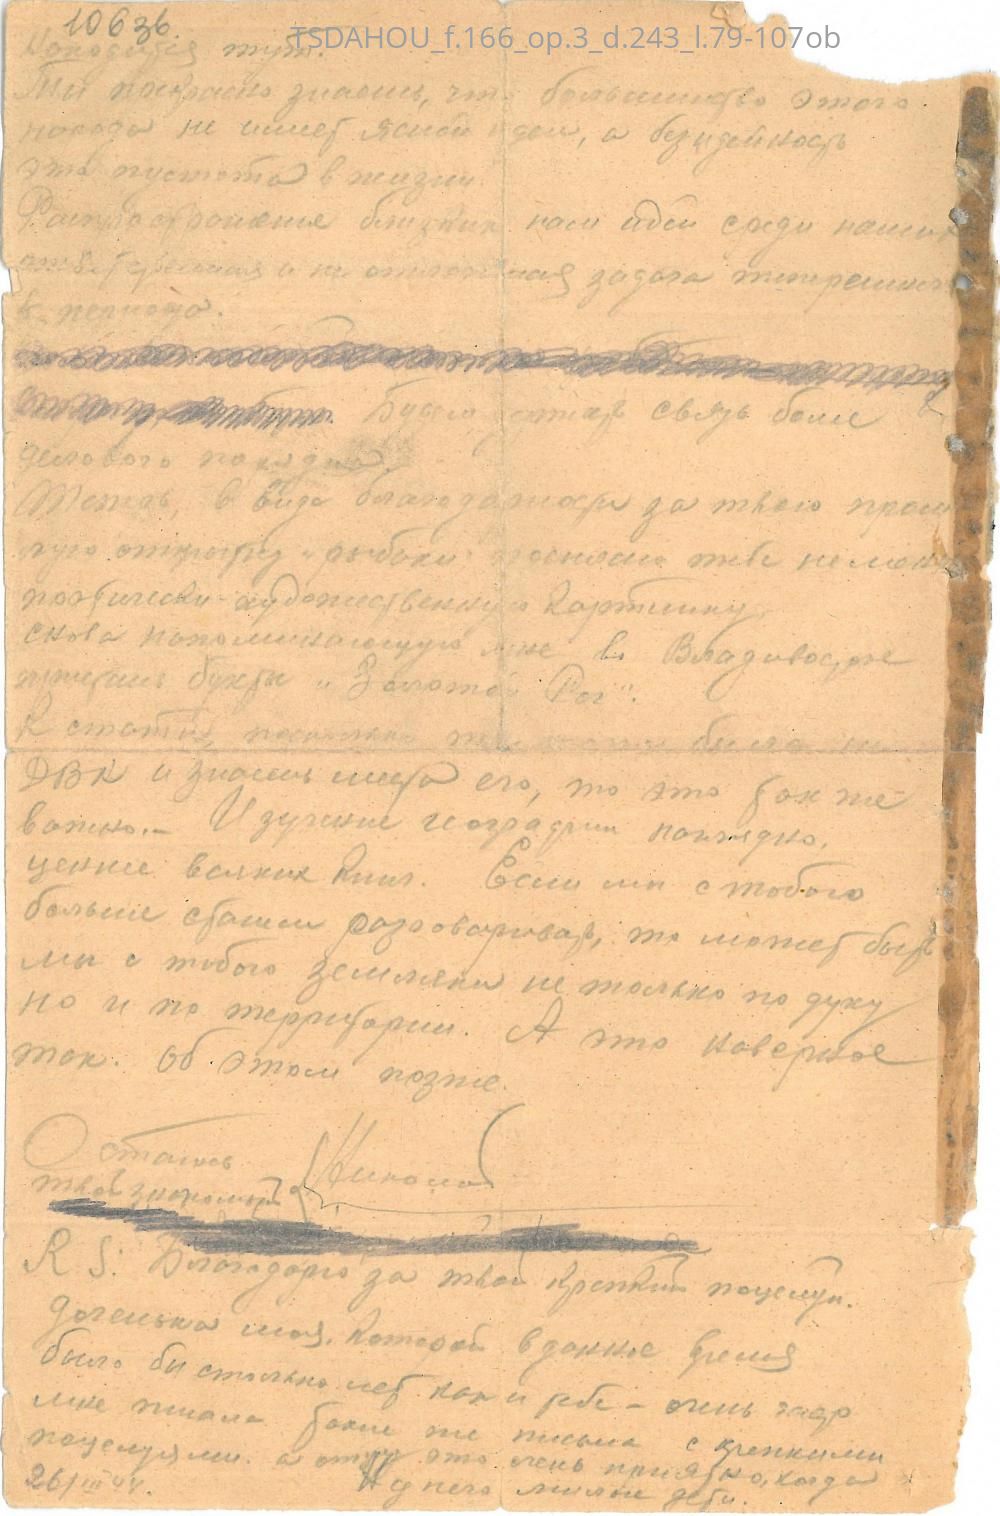 10636.
TSDAHOU_f.166_op.3_d.243_l.79-107ob
Находится тут.
Ты прекрасно знаешь, что большинство этого
народа не имеет ясной идеи, а безидейность
это пустота в жизни.
Распространение близких нам идей среди наших
задача теперешнего
периода.
Будем держать связь более
делового порядка.
в виде благодарности за твою прош
лую открытку "рыбаки" посылаю тебе
поэтически-художественную картинку,
снова напоминающую мне во Владивостоке
бухты "Золотой Рог".
Кстати, поскольку ты была на
ДВК и знаешь места его, то это так же
важно.- Изучение географии наглядно,
ценнее всяких книг. Если мы с тобою
больше станем разговаривать, то может быть
мы с тобою земляки не только по духу
но и по территории. А это наверное
так. Об этом позже.
Остаюсь
твой знакомый Николай
P.S. Благодарю за твой крепкий поцелуй.
Доченька моя, которой в данное время
было бы столько лет как и тебе - очень часто
мне писала такие же письма с крепкими
поцелуями. а отцу это очень приятно, когда
У него милые дети.
26/III 44.